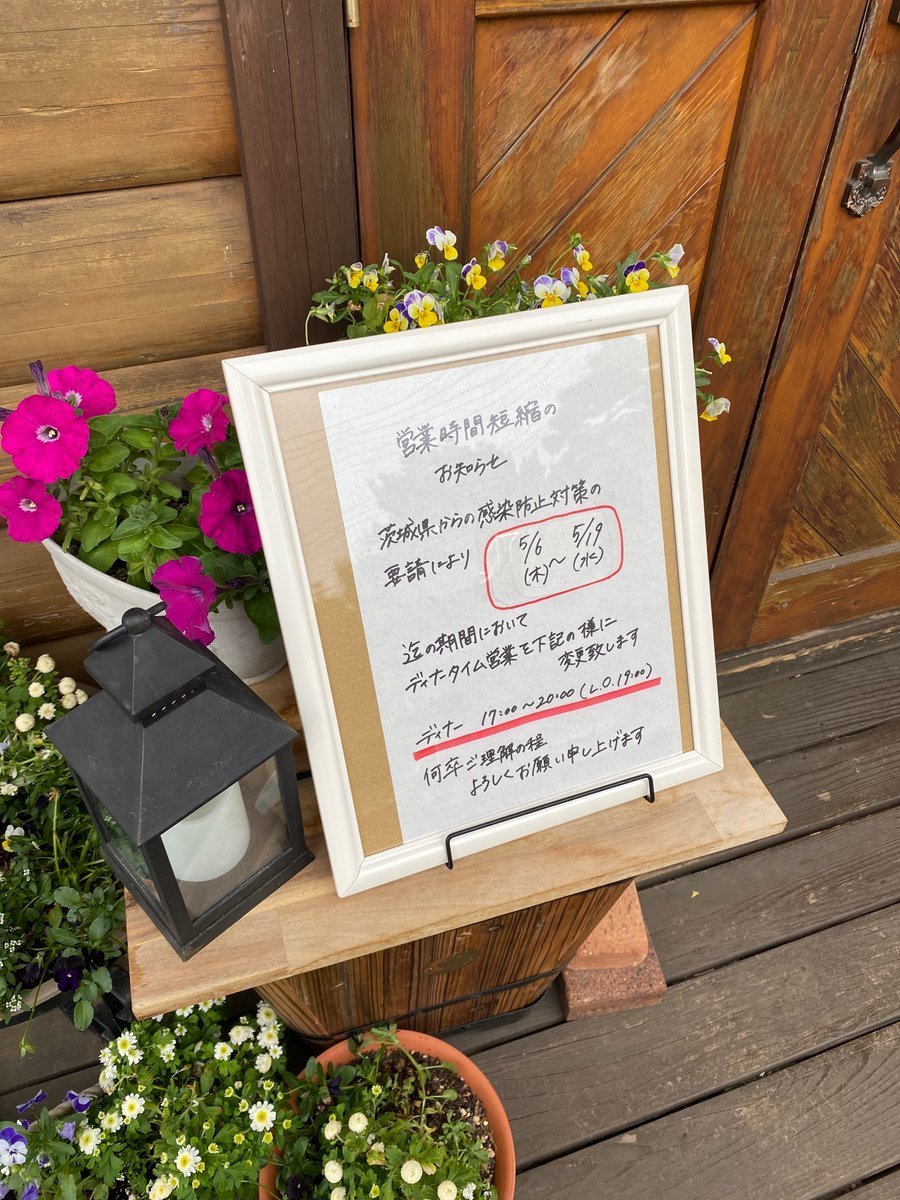 営業時間短縮の
お知らせ
茨城県からの感染防止対策の
要請により 5/6(木)〜5/19(水)
迄の期間において
ディナータイム営業を下記の様に
変更致します
ディナー 17:00〜20:00(L.O.19:00)
何卒ご理解の程
よろしくお願い申し上げます